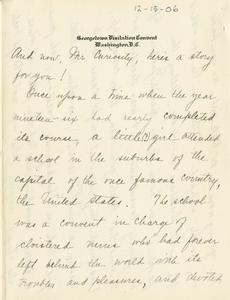 12-15-06
Georgetown Visitation Convent
Washington, D.C.
And now, Mr Curiosity, here's a story
for you!
Once upon a time when the year
nineteen-six had nearly completed
its course, a little(?) girl attended
a school in the suburbs of the
capital of the once famous country,
the United States. The school
was a convent in charge of
cloistered nuns who had forever
left behind the world with its
troubles and pleasures, and devoted